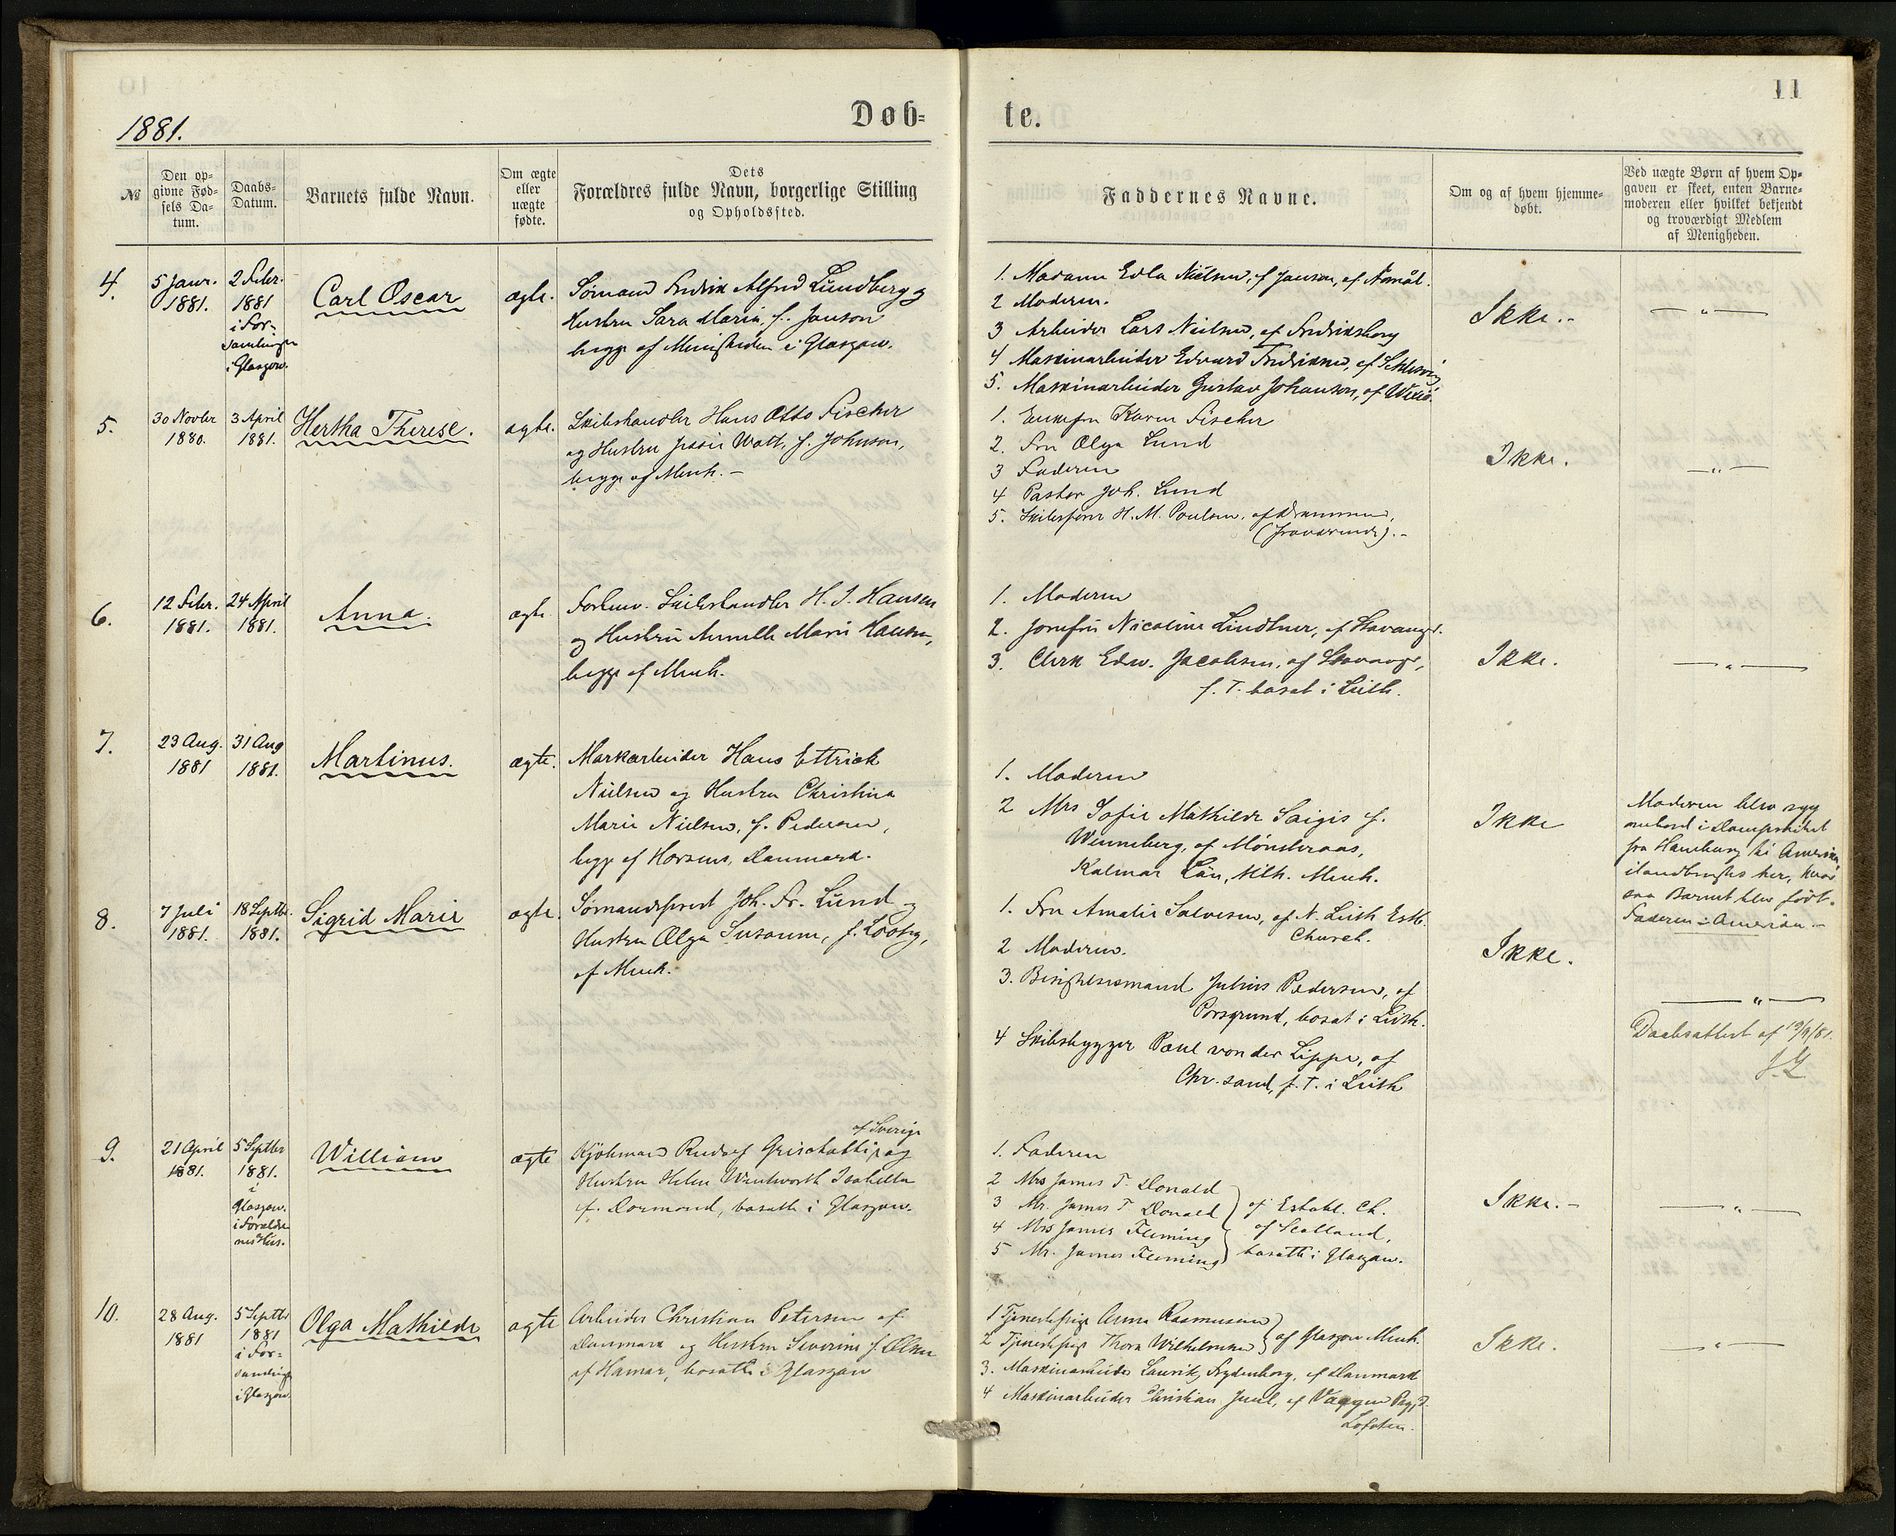 11
1881.
Døb-
te.
№
Den op-
givne Fød-
sels Da-
tum.
Daabs-
Datum.
Barnets fulde Navn.
Om ægte
eller
uægte
fødte.
Dets
Forældres fulde Navn, borgerlige Stilling
og Opholdssted.
Faddernes Navne.
Om og af hvem hjemme-
døbt.
Ved uægte Børn af hvem Op-
gaven er skeet, enten Barne-
moderen eller hvilket bekjendt
og troværdigt Medlem
af Menigheden.
4.
5 Janr.
1881.
2 Febr.
1881
i For-
samlingen
i Glasgow.
Carl Oscar
ægte.
Sømand Fredrik Alfred Lundberg og
Hustru Sara Maria f. Janson
begge af Menigheden i Glasgow.
1. Madame Edla Nielsen, f. Janson, af
2 Moderen.
3 Arbeider Lars Nielsen, af Fredriksborg
4 Maskinarbeider Edvard Fredriksen, af Schleswig
5. Maskinarbeider Gustav Johanson, af Wexiö.
Ikke.-
— „ —
5.
30 Novbr
1880.
3 April
1881.
Hertha Therese.
ægte.
Skibshandler Hans Otto Fischer
og Hustru Jessie Watt, f. Johnson,
begge af Menh. -
1. Enkefru Karen Fischer
2. Fru Olga Lund
3 Faderen
4 Pastor Joh. Lund
5. Skibsfører H. M. Poulsen, af Drammen,
(fraværende). -
Ikke.
— „ —
6.
12 Febr.
1881.
24 April
1881.
Anna.
ægte
Forhenv. Skibshandler H. J. Hansen
og Hustru Annette Marie Hansen,
begge af Menh.
1. Moderen
2. Jomfru Nicoline Lindtner, af Stavanger.
3. Clerk Edw. Jacobsen, af Stavanger,
f. T. bosat i Leith.
Ikke.
— „ —
7.
23 Aug.
1881
31 Aug
1881.
Martinus.
ægte.
Markarbeider Hans Ettrich
Nielsen og Hustru Christina
Marie Nielsen, f. Pedersen,
begge af Horsens, Danmark.
1. Moderen
2 Mrs Sofie Mathilde Saigis f.
Wenneberg, af Mönsteraas,
Kalmar Län, Mlh. Menh.
Ikke
Moderen blev syg
ombord i Dampskibet
fra Hamburg til Amerika,
ilandbragtes her, hvor
saa Barnet blev født.
Faderen i Amerika. -
8.
7 Juli
1881.
18 Septbr.
1881.
Sigrid Marie
ægte.
Sømandsprest Joh. Fr. Lund og
Hustru Olga Susanne, f.
af Menh.
1. Fru Amalie Salvesen, af N. Leith Estb.
Church.
2 Moderen.
3. Bestillelsesmand Julius Pedersen, af
Porsgrund, bosat i Leith.
4 Skibsbygger Paul von der Lippe, af
Chr.sand, f. T. i Leith
Ikke.
— „ —
Daabsattest af 19/9/81.
J. L.
9.
21 April
1881.
5 Septbr
1881.
i
Glasgow.
i Foreldre
nes Hus.
William
ægte
af Sverige
Kjøbmand Rudolf Grischotti og
Hustru Helen Wentworth Isabella
f. Dormond, bosatte i Glasgow.
1. Faderen
2 Mrs James T. Donald
3 Mr. James T Donald
4 Mrs James Fleming
5 Mr. James Fleming
af Establ. Ch.
of Scotland,
bosatte i Glasgow.
Ikke. -
— „ —
10.
28 Aug.
1881
5 Septbr
1881
i For-
samlinge
i Glasgow.
Olga Mathilde
ægte
Arbeider Christian Petersen af
Danmark og Hustru Severine f. Olsen
af Hamar, bosatte i Glasgow
1 Tjenestepige Anna Rasmussen
2 Tjenestepige Thora Wilhelmsen
af Glasgow Menh.
3. Maskinarbeider Laurits Frydenborg, af Danmark
4 Maskinarbeider Christian Juul, af Vaagen Prgjd.
Lofoten.
Ikke.
— „ —